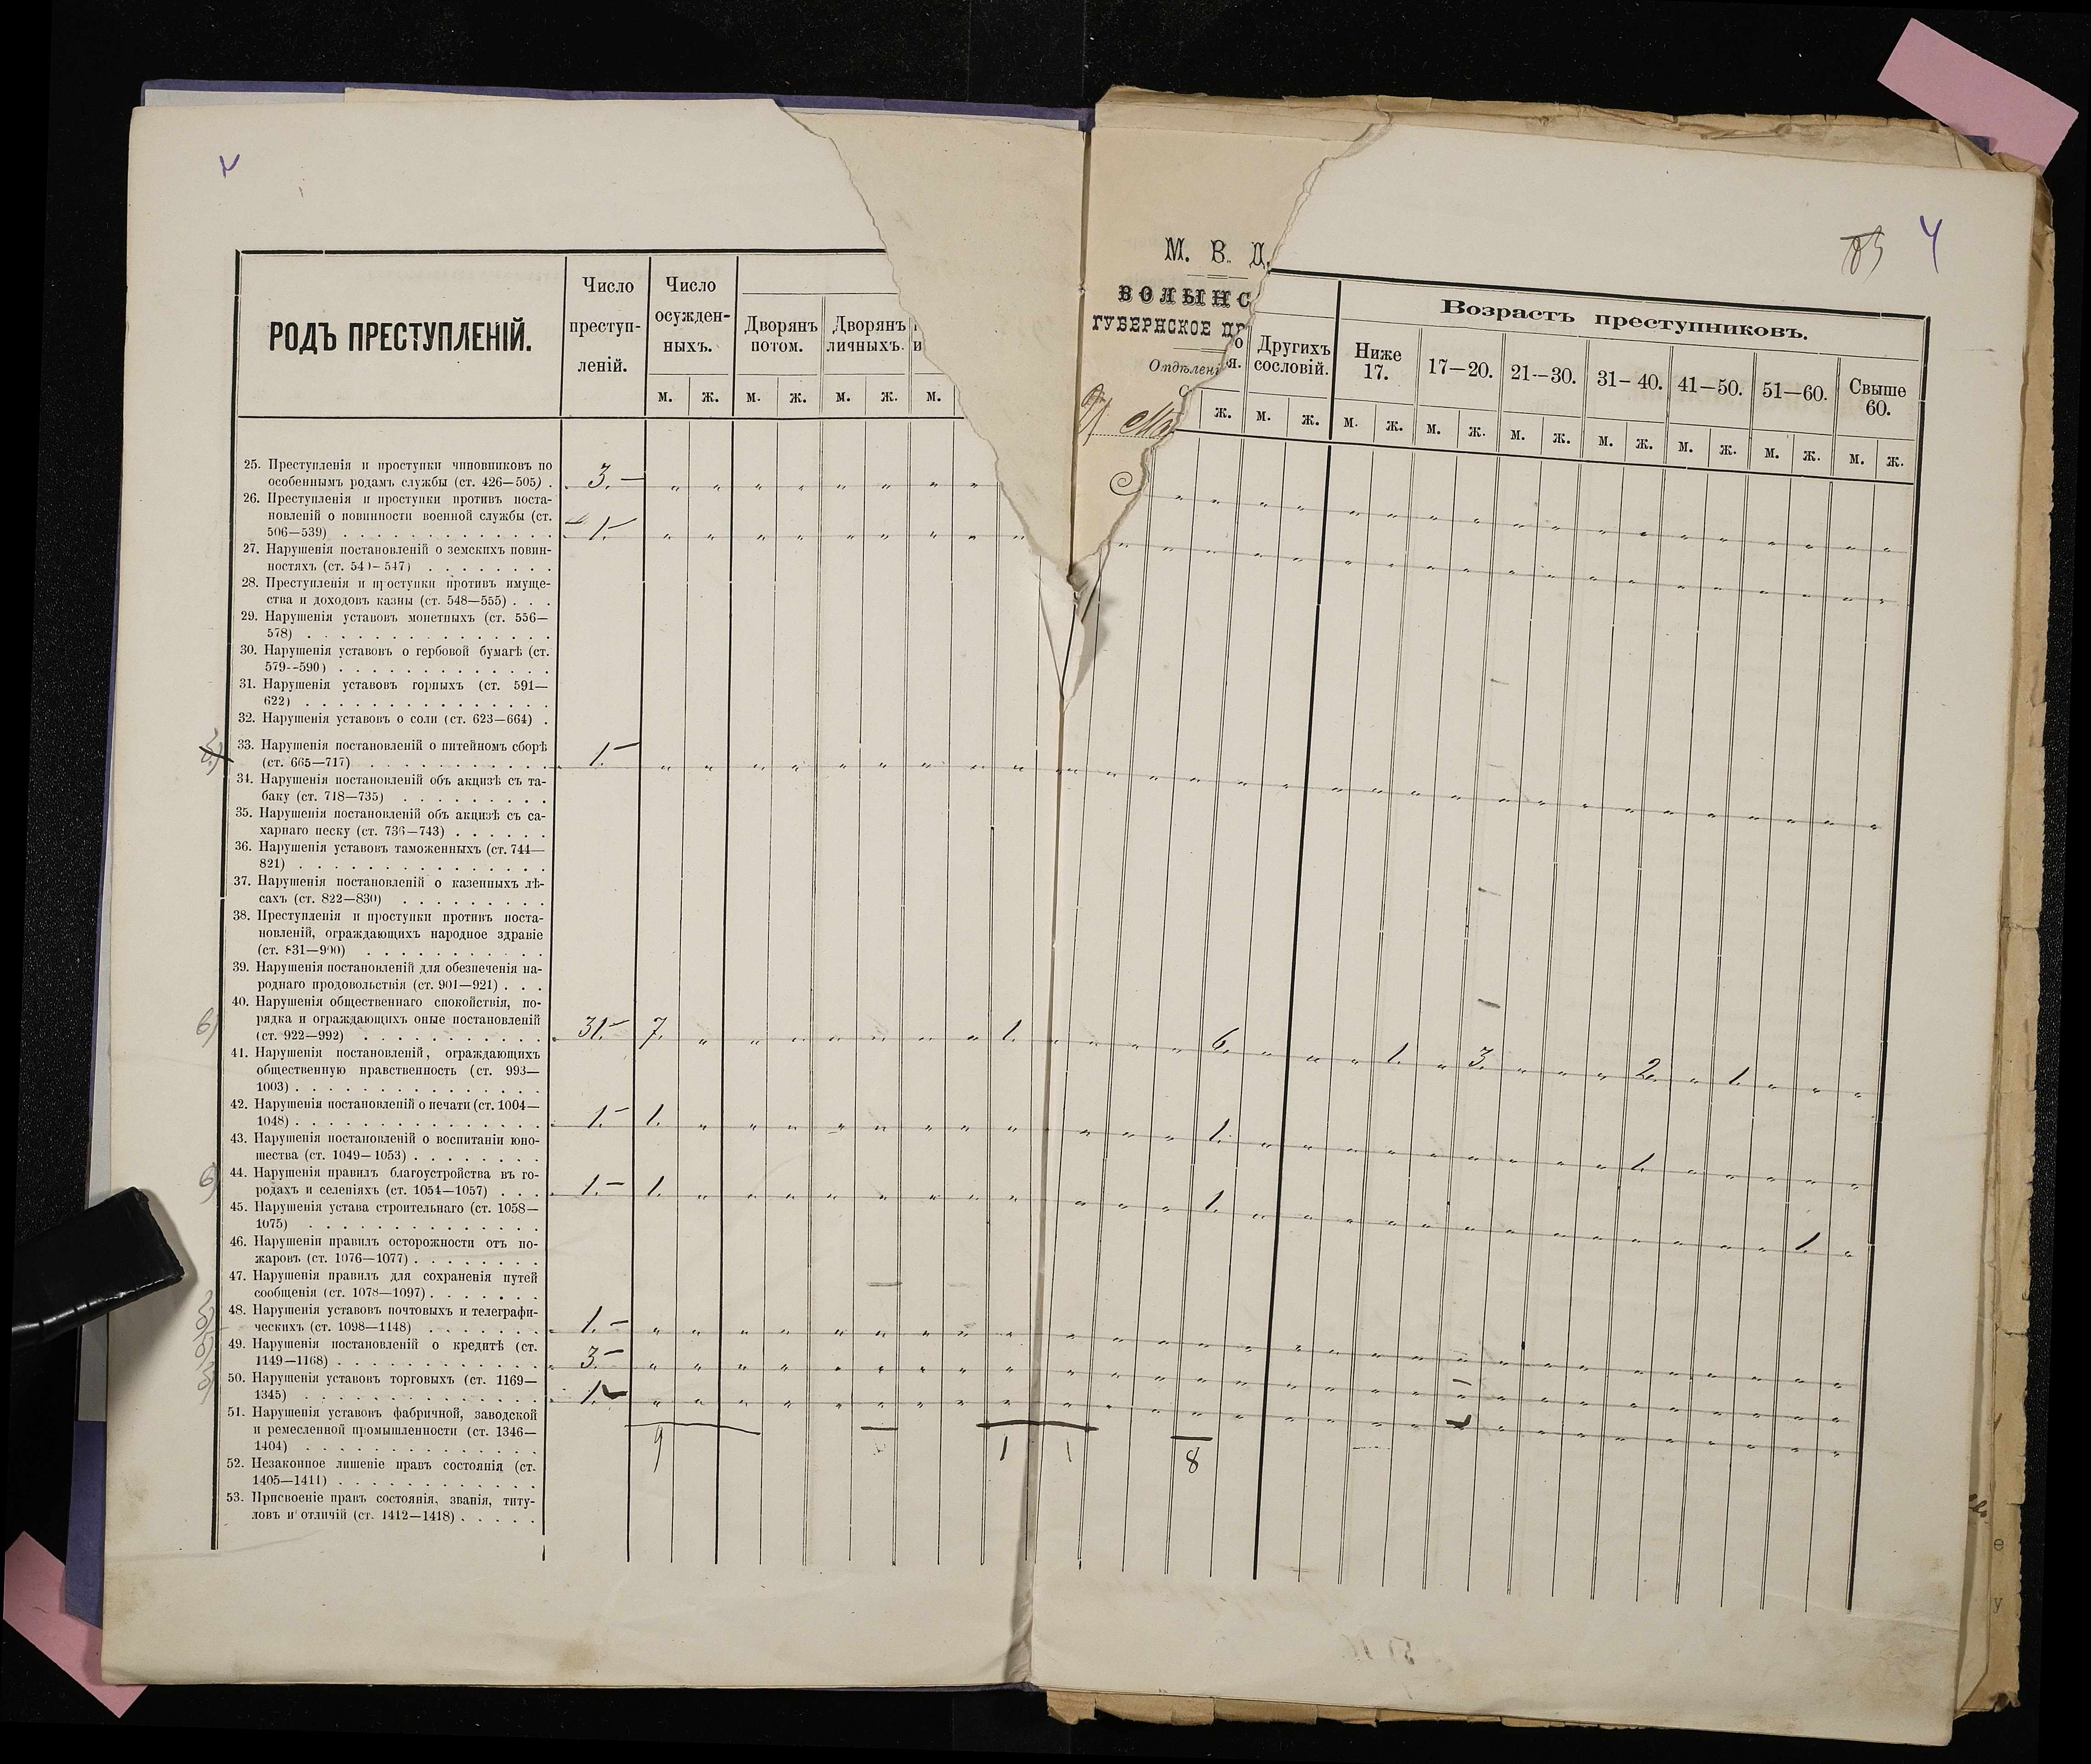 4
М. В. Д.
ВОЛЫНС
ГУБЕРНСКОЕ ПР
Отдѣлені
РОДЪ ПРЕСТУПЛЕНІЙ.
Число
преступ-
леній.
Число
осужден-
ныхъ.
Дворянъ
потом.
Дворянъ
личныхъ.
Другихъ
сословій.
Возрастъ преступниковъ.
Ниже
17.
17—20.
21—30.
31—40.
41—50.
51—60.
Свыше
60.
м. ж. м. ж. м. ж. м.
ж. м. ж. м. ж. м. ж. м. ж. м. ж. м. ж. м. ж. м. ж.
25. Преступленія и проступки чиновниковъ по
особеннымъ родамъ службы (ст. 426—505) . 3.
26. Преступленія и проступки противъ поста-
новленій о повинности военной службы (ст.
506—539) 1.
27. Нарушенія постановленій о земскихъ повин-
ностяхъ (ст. 540—547)
28. Преступленія и проступки противъ имуще-
ства и доходовъ казны (ст. 548—555)
29. Нарушенія уставовъ монетныхъ (ст. 556—
578)
30. Нарушенія уставовъ о гербовой бумагѣ (ст.
579--590)
31. Нарушенія уставовъ горныхъ (ст. 591—
622)
32. Нарушенія уставовъ о соли (ст. 623—664) .
33. Нарушенія постановленій о питейномъ сборѣ
(ст. 665—717) 1.
34. Нарушенія постановленій объ акцизѣ съ та-
баку (ст. 718—735)
35. Нарушенія постановленій объ акцизѣ съ са-
харнаго песку (ст. 736—743)
36. Нарушенія уставовъ таможенныхъ (ст. 744—
821)
37. Нарушенія постановленій о казенныхъ лѣ-
сахъ (ст. 822—830)
38. Преступленія и проступки противъ поста-
новленій, ограждающихъ народное здравіе
(ст. 831—900)
39. Нарушенія постановленій для обезпеченія на-
роднаго продовольствія (ст. 901—921)
40. Нарушенія общественнаго спокойствія, по-
рядка и ограждающихъ оные постановленій
(ст. 922—992) 31. 7. 1. 6. 1. 3. 2. 1.
41. Нарушенія постановленій, ограждающихъ
общественную нравственность (ст. 993—
1003)
42. Нарушенія постановленій о печати (ст. 1004—
1048) 1. 1. 1. 1.
43. Нарушенія постановленій о воспитаніи юно-
шества (ст. 1049—1053)
44. Нарушенія правилъ благоустройства въ го-
родахъ и селеніяхъ (ст. 1054—1057) 1. 1. 1. 1.
45. Нарушенія устава строительнаго (ст. 1058—
1075)
46. Нарушеніи правилъ осторожности отъ по-
жаровъ (ст. 1076—1077)
47. Нарушенія правилъ для сохраненія путей
сообщенія (ст. 1078—1097)
48. Нарушенія уставовъ почтовыхъ и телеграфи-
ческихъ (ст. 1098—1148) 1.
49. Нарушенія постановленій о кредитѣ (ст.
1149—1168) 3.
50. Нарушенія уставовъ торговыхъ (ст. 1169—
1345) 1.
51. Нарушенія уставовъ фабричной, заводской
и ремесленной промышленности (ст. 1346—
1404)
9 1 1 8
52. Незаконное лишеніе правъ состоянія (ст.
1405—1411)
53. Присвоеніе правъ состоянія, званія, титу-
ловъ и отличій (ст. 1412—1418)